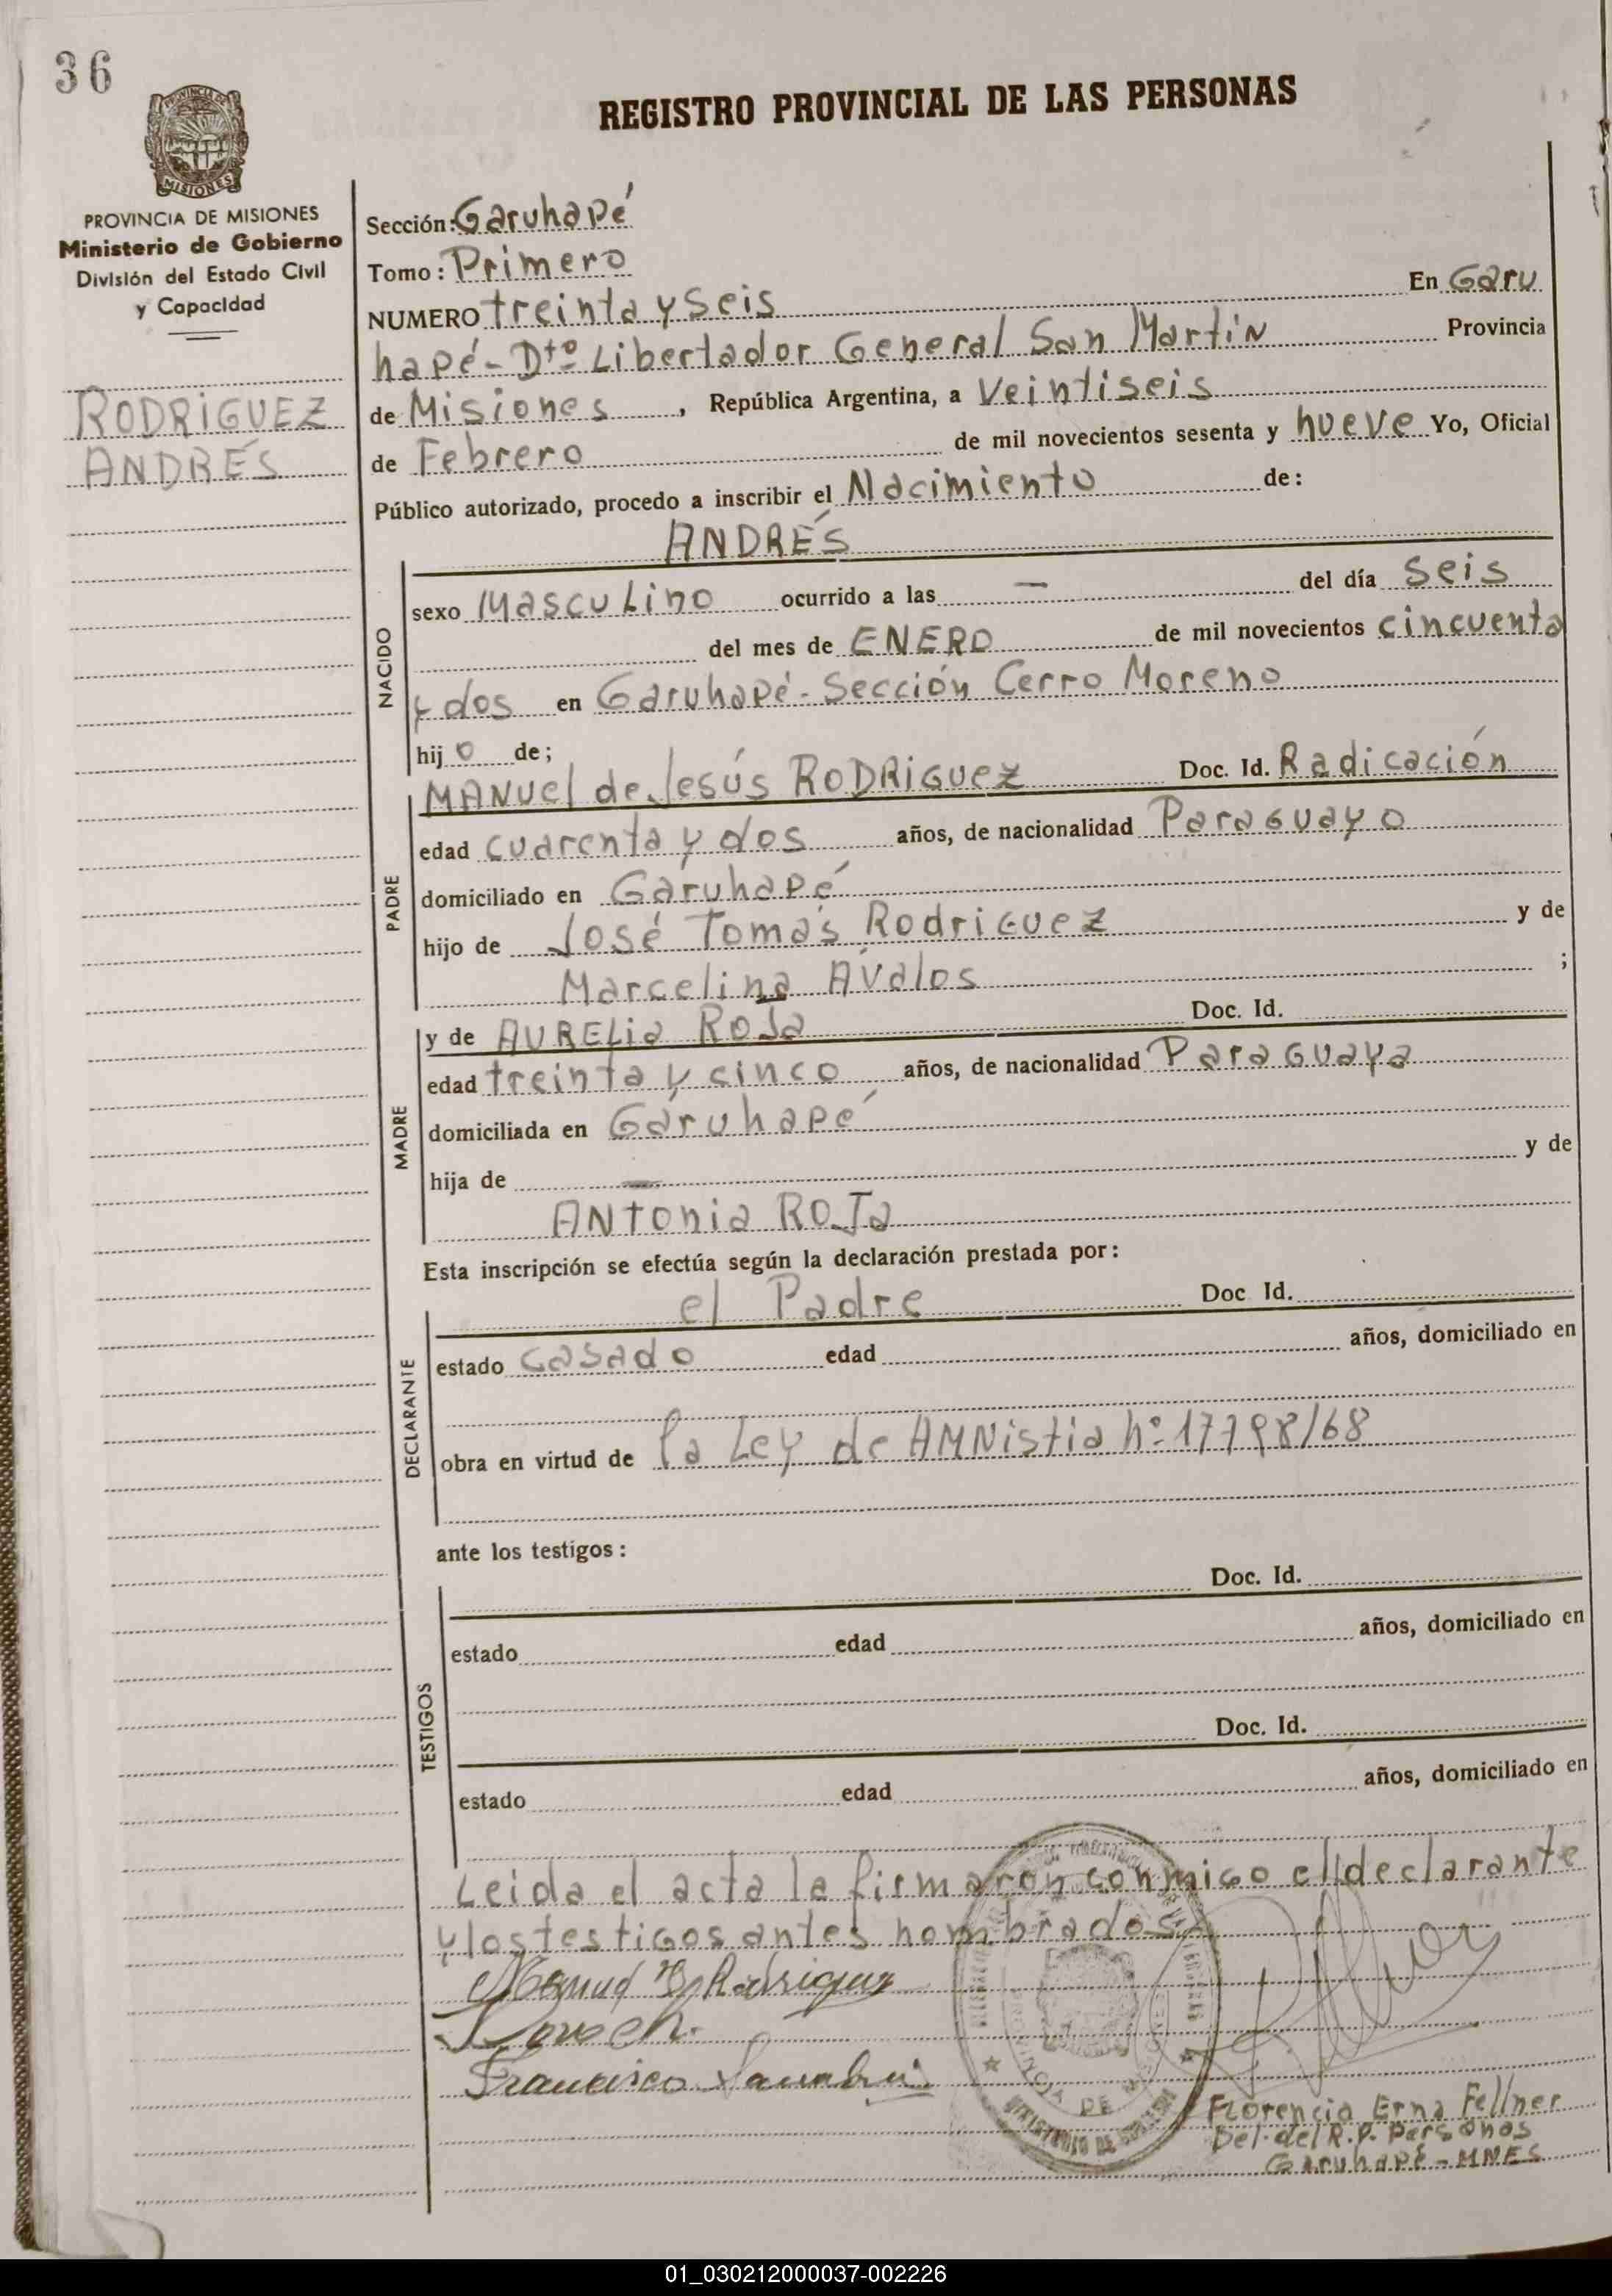 36
REGISTRO PROVINCIAL DE LAS PERSONAS
PROVINCIA DE
MISIONES
PROVINCIA DE MISIONES
Ministerio de Gobierno
División del Estado Civil
y Capacidad
RODRIGUEZ
ANDRÉS
Sección: Garuhapé
Tomo: Primero
NUMERO treinta y seis En Garu
hapé - Dto Libertador General San Martín Provincia
de Misiones, República Argentina, a Veintiseis
de Febrero de mil novecientos sesenta y nueve Yo, Oficial
Público autorizado, procedo a inscribir el Nacimiento de:
ANDRÉS
NACIDO
sexo Masculino ocurrido a las — del día seis
del mes de ENERO de mil novecientos cincuenta
y dos en Garuhapé - Sección Cerro Moreno
hijo de;
PADRE
MANUEL de Jesús RODRIGUEZ Doc. Id. Radicación
edad cuarenta y dos años, de nacionalidad Paraguayo
domiciliado en Garuhapé
hijo de José Tomás Rodriguez y de
Marcelina Ávalos ;
MADRE
y de AURELIA ROJA Doc. Id.
edad treinta y cinco años, de nacionalidad Paraguaya
domiciliada en Garuhapé
hija de — y de
ANTONIA ROJA
Esta inscripción se efectúa según la declaración prestada por:
DECLARANTE
el Padre Doc Id.
estado casado edad años, domiciliado en
obra en virtud de la Ley de AMNistia nº 17798/68
ante los testigos:
TESTIGOS
Doc. Id.
estado edad años, domiciliado en
Doc. Id.
estado edad años, domiciliado en
Leida el acta la firmaron conmigo el declarante
y los testigos antes nombrados
Rodriguez
Francisco
PROVINCIA DE
MINISTERIO DE
Florencia Erna Fellner
Del. del R.P. Personas
Garuhapé - MNES
01_030212000037-002226